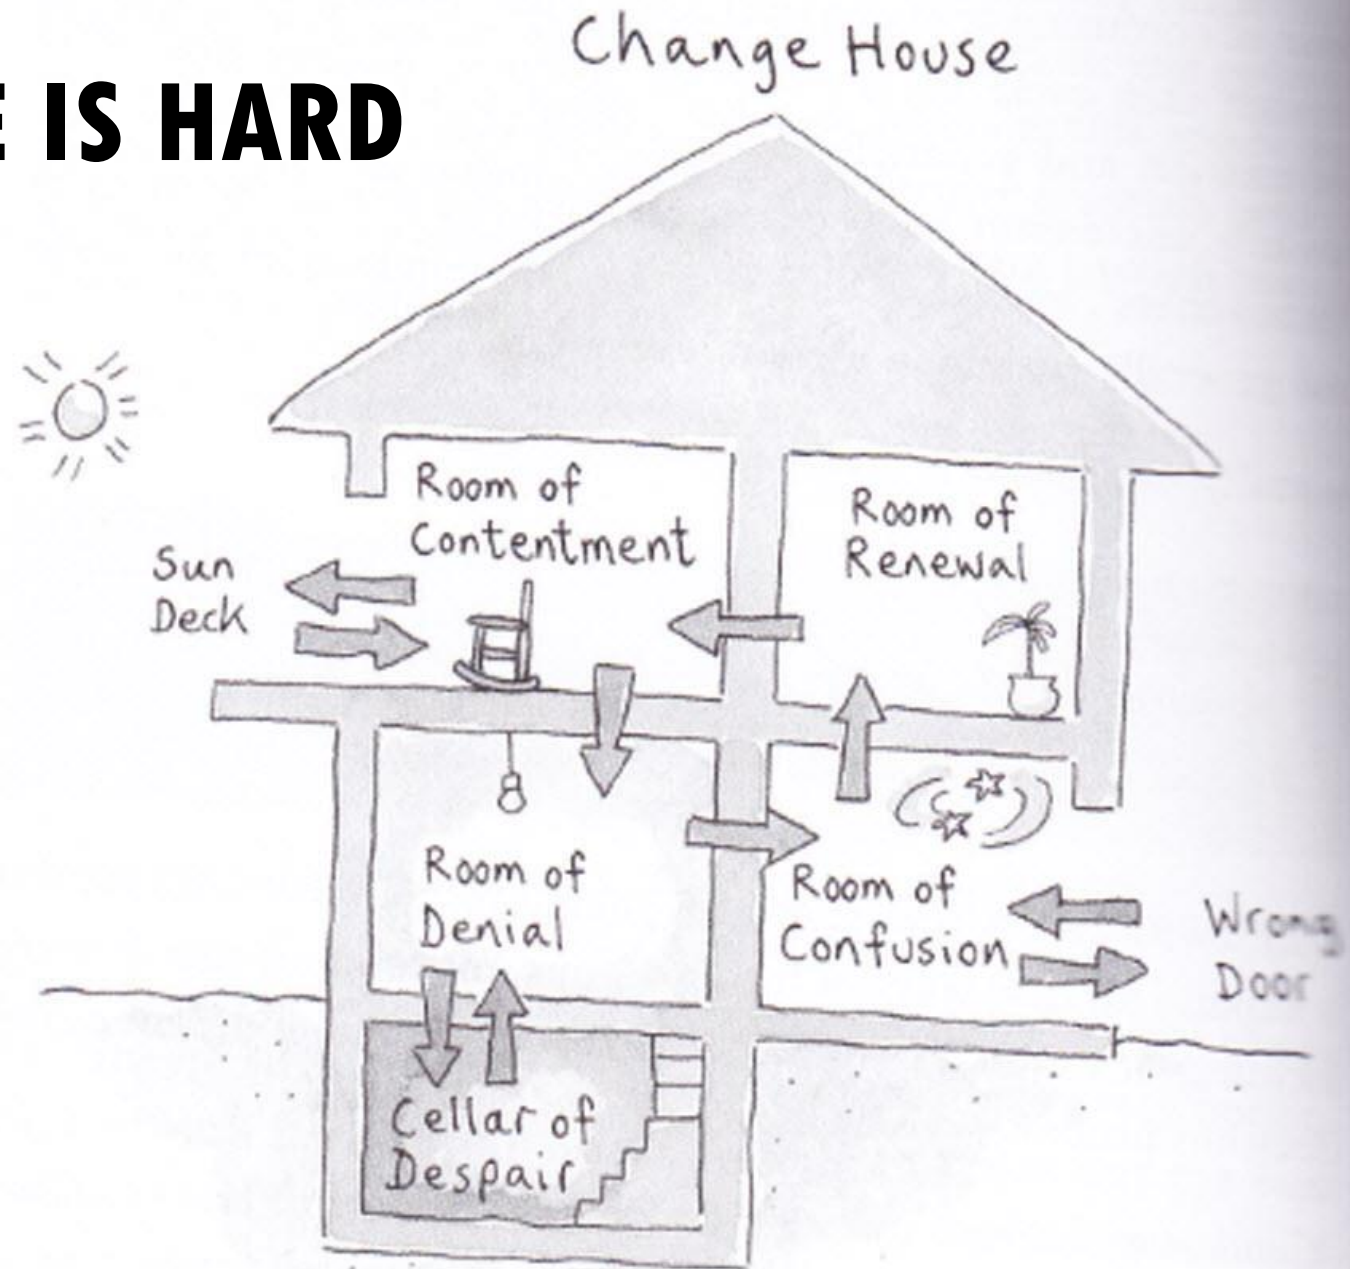 Change House
E IS HARD
Room of
Contentment
Room of
Renewal
Sun
Deck
Room of
Denial
Room of
Confusion
Wrong
Door
Cellar of
Despair